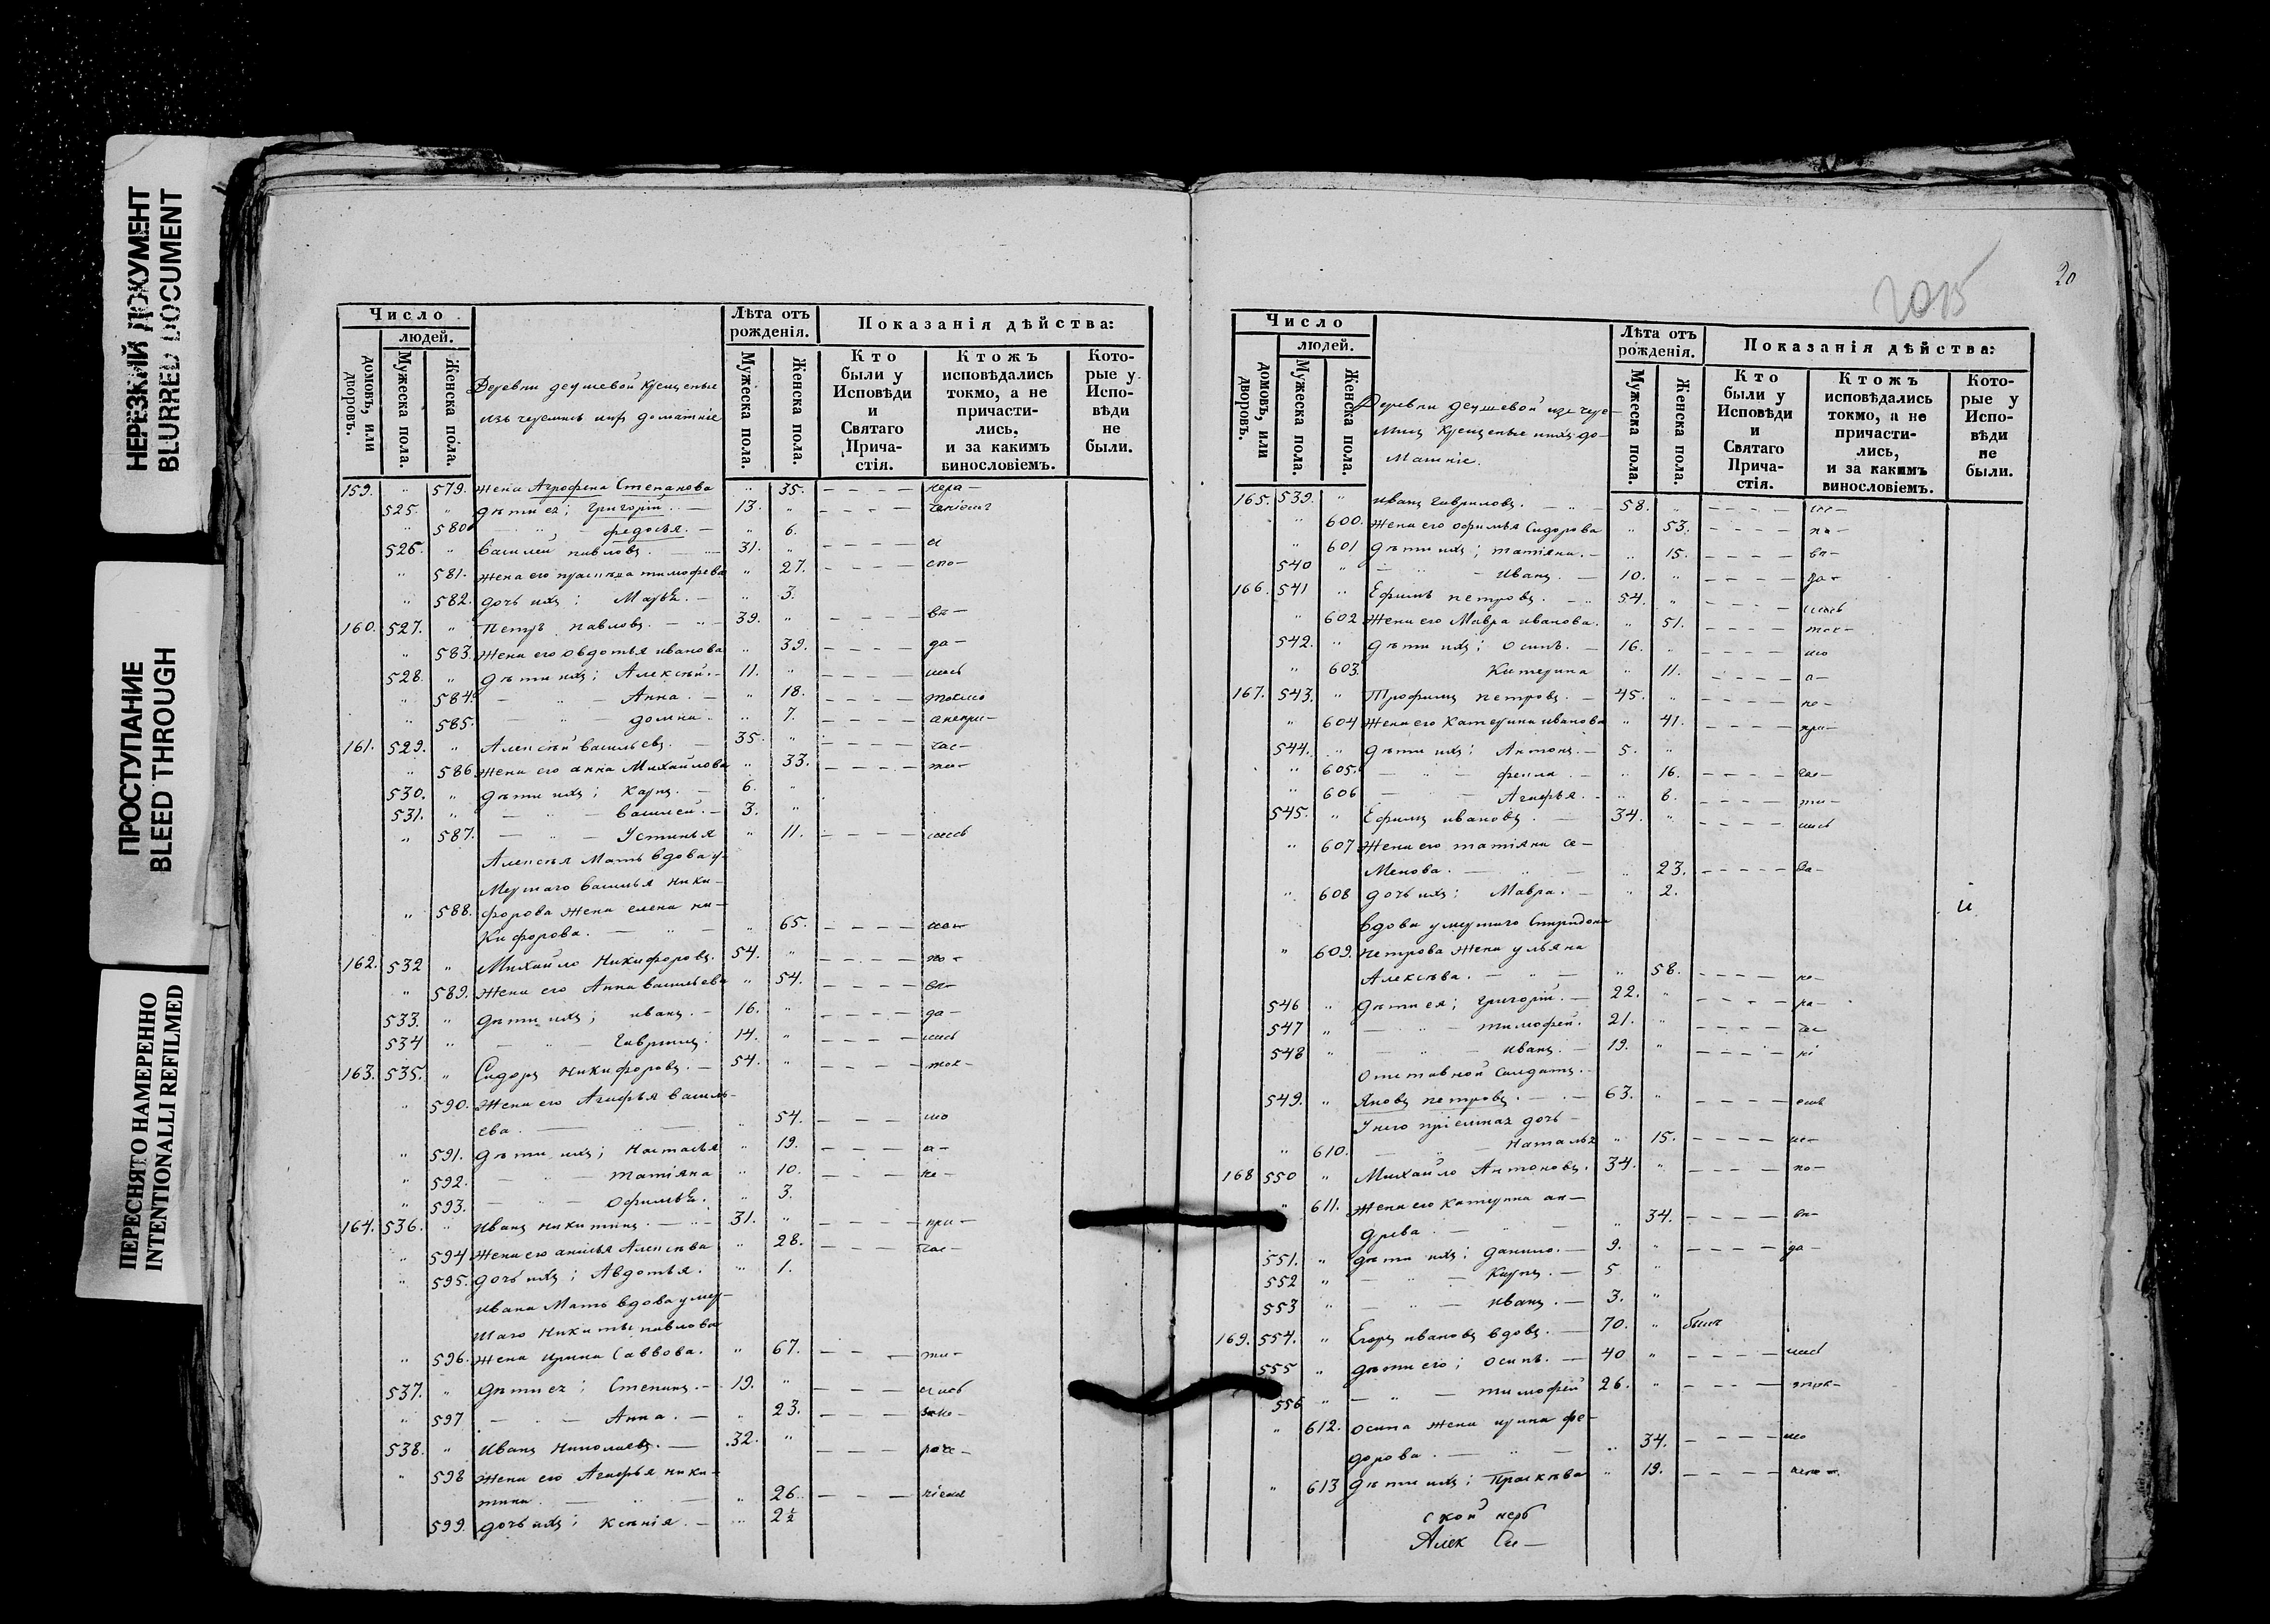 НЕРЕЗКИЙ ДОКУМЕНТ
BLURRED DOCUMENT
ПРОСТУПАНИЕ
BLEED THROUGH
ПЕРЕСНЯТО НАМЕРЕННО
INTENTIONALLI REFILMED
Число
людей.
домовъ, или дворовъ.
Мужеска пола.
Женска пола.
Деревни деушевой крещеные
изъ черемисъ ихъ домашніе
Лѣта отъ рожденія.
Мужеска пола.
Женска пола.
Показанія дѣйства:
Кто были у Исповѣди и Святаго Прича-стія.
Ктожъ исповѣдались токмо, а не причасти-лись, и за какимъ винословіемъ.
Кото-рые у Испо-вѣди не были.
159. " 579. жена Агрофена Степанова " 35.
525. " дѣти ея; Григорій. 13. "
" 580 федосья. " 6.
526. " Василей павловъ. 31. "
" 581. жена его тимофева " 27. спо-
" 582. дочь ихъ; Марья. " 3.
160. 527. " Петръ павловъ. 39. " вѣ-
" 583. жена его овдотья иванова " 39. да-
528. " дѣти ихъ; Алексѣй. 11. " лись
" 584. Анна. " 18. токмо
" 585. домна. " 7. анепри-
161. 529. " Алексѣй васильевъ. 35. " час-
" 586 жена его анна Михайлова " 33. ти-
530. " дѣти ихъ; Карпъ. 6. "
531. " василей. 3. "
" 587. Устинья " 11. лись
Алексѣя Мать вдова у-
мершаго василья ники-
" 588. форова жена елена ни-
кифорова. " 65.
162. 532 " Михайло Никифоровъ. 54. " по-
" 589. жена его Анна васильева " 54. вѣ-
533. " дѣти ихъ; иванъ. 16. " да-
534 " Гаврилъ. 14. " лись
163. 535. " Сидоръ Никифоровъ. 54. " ток-
" 590. жена его Агафья василь-
ева. " 54. мо
" 591. дѣти ихъ; Настасья " 19. а-
" 592. татіяна " 10. не-
" 593. Офимья. " 3.
164. 536. " иванъ никитинъ. 31. " при-
" 594 жена его анисья Алексѣва " 28. час-
" 595. дочь ихъ; Авдотья. " 1.
ивана Мать вдова умер-
шаго Никиты павлова
" 596. жена ирина Саввова. " 67. ти-
537. " дѣти ея; Степанъ. 19. "
" 597 Анна. " 23.
538. " иванъ Николаевъ. 32. "
" 598 жена его Агафья ники-
тина. " 26.
599. дочь ихъ; Ксѣнія. 2½
20
2015
Число
людей.
домовъ, или дворовъ.
Мужеска пола.
Женска пола.
Деревни деушевой изъ чере-
мисъ крещеные ихъ до-
машніе.
Лѣта отъ рожденія.
Мужеска пола.
Женска пола.
Показанія дѣйства:
Кто были у Исповѣди и Святаго Прича-стія.
Ктожъ исповѣдались токмо, а не причасти-лись, и за какимъ винословіемъ.
Кото-рые у Испо-вѣди не были.
165. 539. " иванъ гавриловъ. 58. "
" 600. жена его офимья Сидорова " 53. по-
" 601 дѣти ихъ; татіяна. " 15. вѣ-
540 " иванъ. 10. " да-
166. 541 " Ефимъ петровъ. 54. " лись
" 602 жена его Мавра иванова. " 51. ток-
542. " дѣти ихъ; осипъ. 16. " мо
" 603. Катерина " 11. а-
167. 543. " Трофимъ петровъ. 45. " не-
" 604 жена его Катерина иванова " 41. при-
544. " дѣти ихъ; Антонъ. 5. "
" 605. фекла. " 16. час-
" 606 Агафья. " 6. ти-
545. " Ефимъ ивановъ. 34. " лись
" 607 жена его татіяна се-
менова. " 23. за-
" 608 дочь ихъ; Мавра. " 2.
вдова умершаго Спиридона
" 609. петрова жена ульяна
Алексѣва. " 58. не-
546 " дѣти ея; григорій. 22. " ра-
547 " тимофей. 21. "
548 " иванъ. 19. "
Отставной Салдатъ.
549. " Яковъ петровъ. 63. "
У него пріемная дочь
" 610. Наталья " 15. ис-
168 550 " Михайло Антоновъ. 34. " по-
" 611. жена его катерина ан-
древа. " 34. вѣ-
551. " дѣти ихъ; данило. 9. " да-
552 " Карпъ. 5 "
553 " иванъ. 3. "
169. 554. " Егоръ ивановъ вдовъ. 70. " былъ
555 " дѣти его; осипъ. 40 " лись
556 " тимофей 26. "
" 612. осипа жена ирина фе-
дорова. " 34. мо
" 613 дѣти ихъ; Прасковья " 19.
ской іерей
Алек Си-